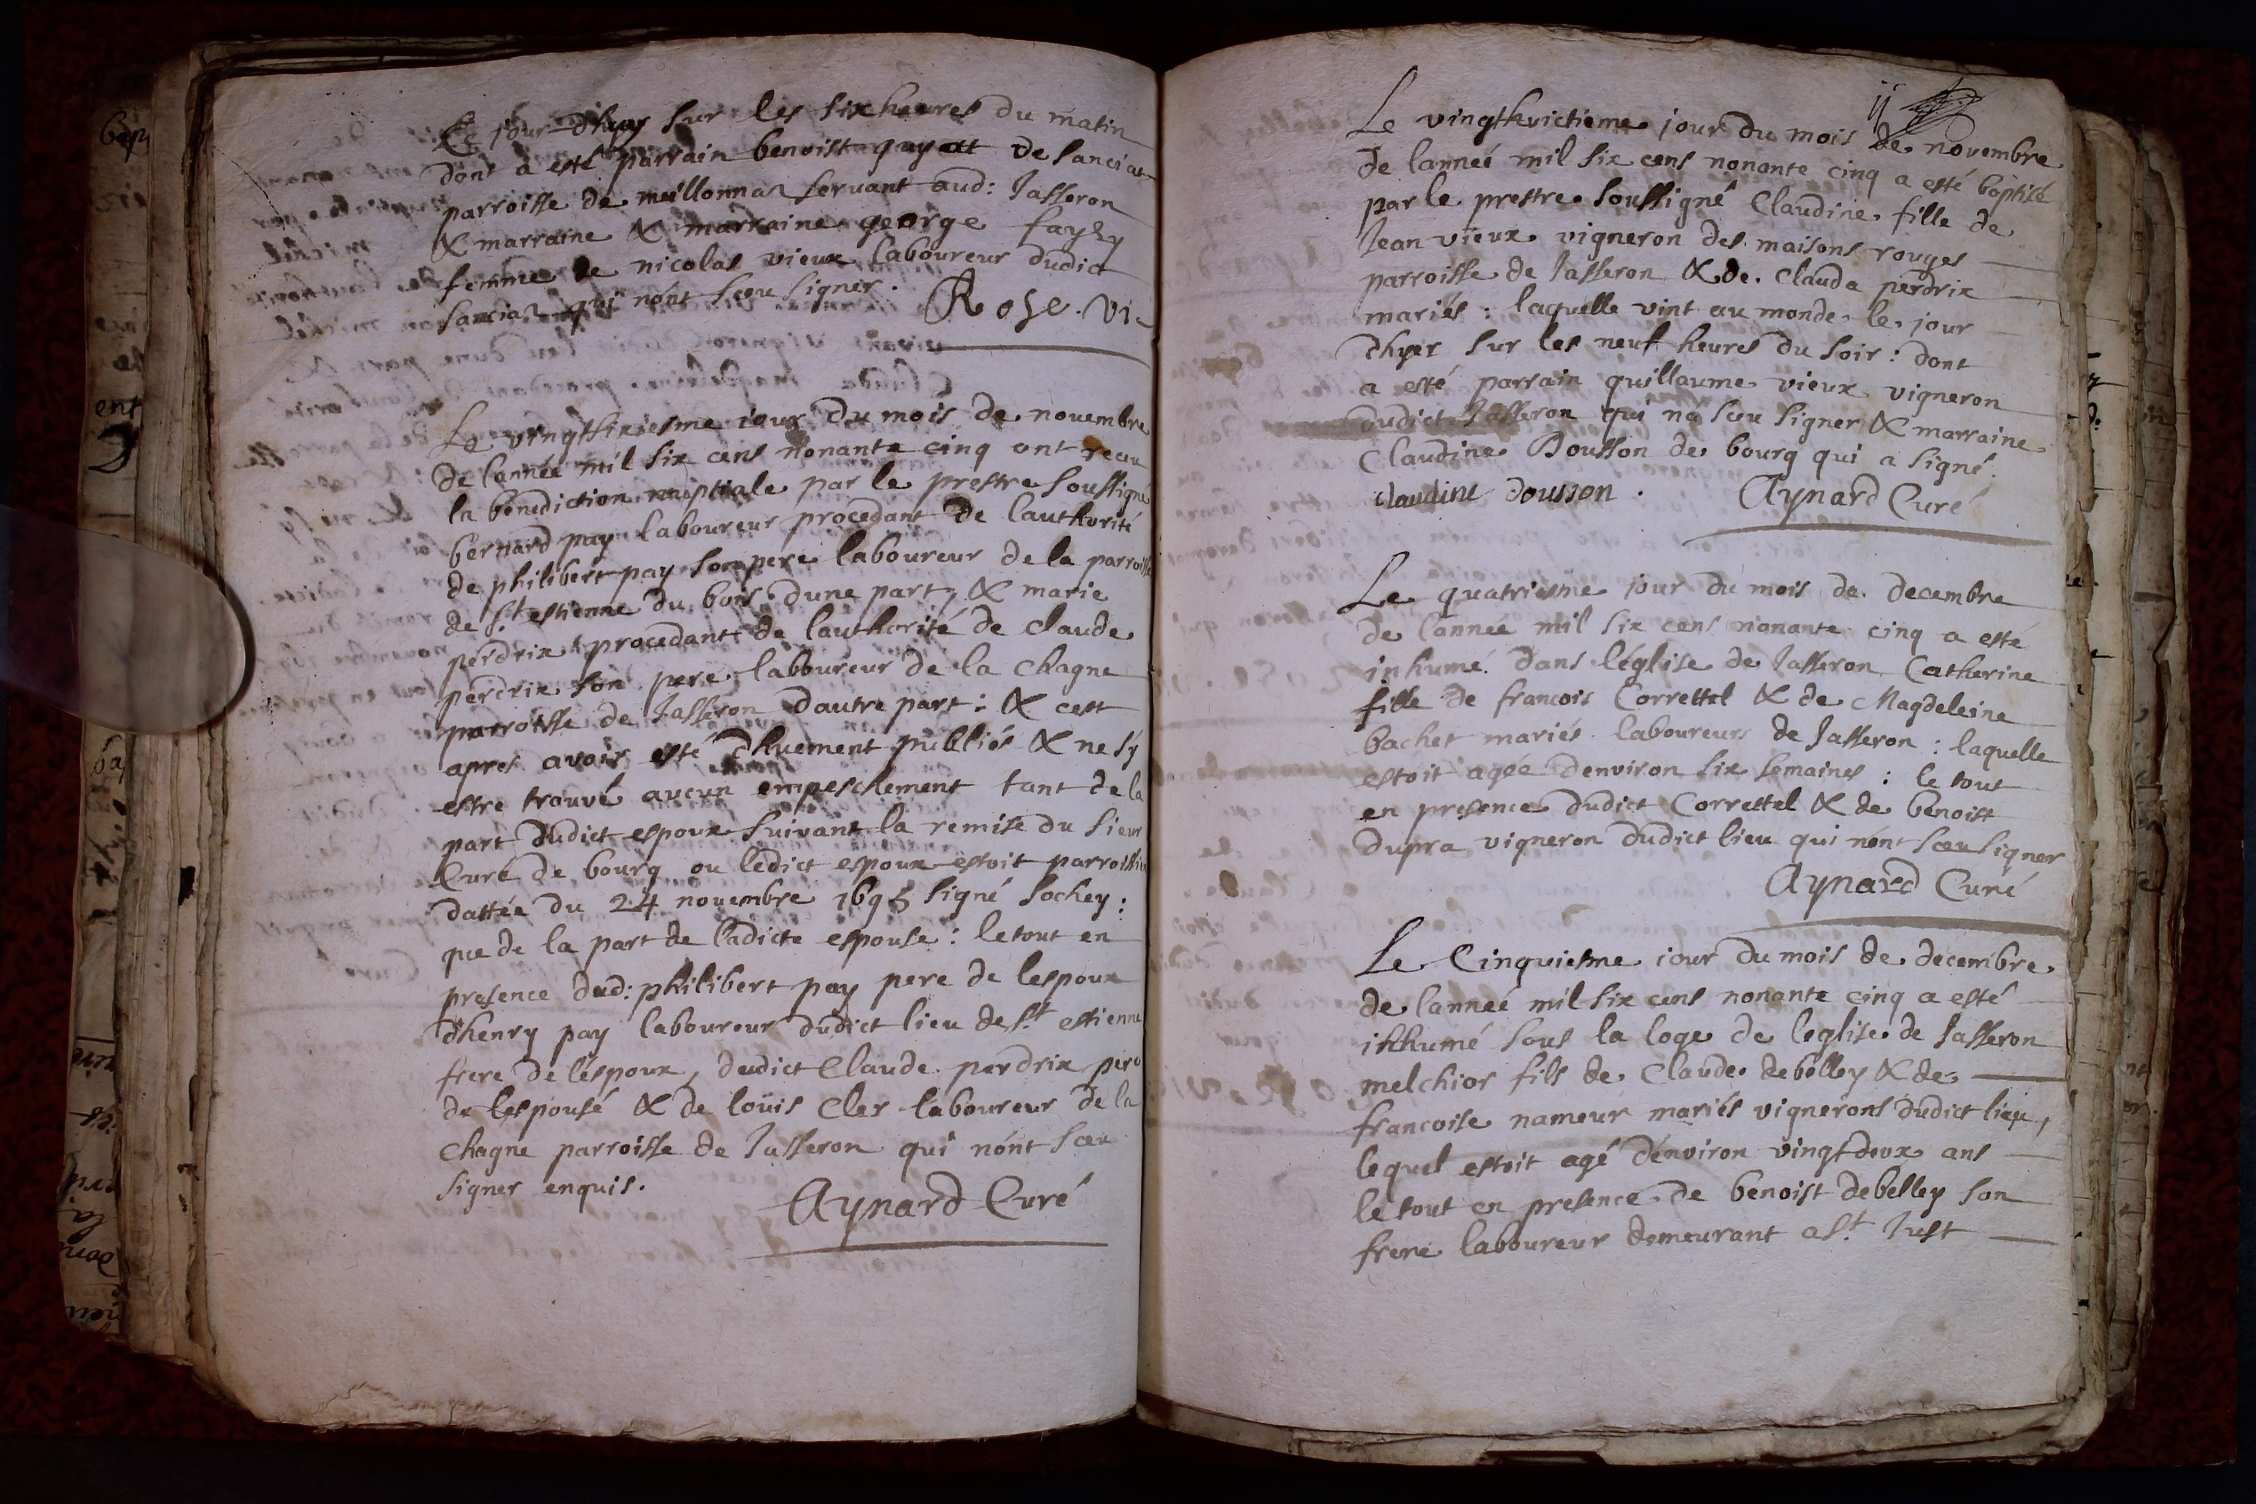 Ce jour dhuy sur les six heures du matin
dont a esté parrain benoist guyatt de sanciat
parroisse de meillonnaz servant aud: Jasseron
& marraine & marraine george fayzy
femme de nicolas vieux laboureur dudict
sanciaz qui nónt sceu signer. Rose. vic
Le vingtsixiesme iour du mois de novembre
de lannée mil six cens nonante cinq ont receu
la benediction nuptiale par le prestre soussigné
bernard pay laboureur procedant de lauthorité
de philibert pay son pere laboureur de la parroisse
de st estienne du bois dune part, & marie
perdrix procedante de lauthorité de claude
perdrix son pere laboureur de la chagne
parroisse de Jasseron dautre part: & cest
apres avoir esté dhuement publiés & ne sÿ
estre trouvé aucun empeschement tant de la
part dudict espoux suivant la remise du sieur
Curé de bourg ou ledict espoux estoit parroissien
dattée du 24 novembre 1695 signé sochey:
que de la part de ladicte espouse: le tout en
presence dud: philibert pay pere de lespoux
dhenry pay laboureur dudict lieu de st estienne
frere de léspoux, dudict Claude perdrix pere
de lespousé & de loüis Cler laboureur de la
Chagne parroisse de Jasseron qui nónt sceu
signer enquis.
Aynard Curé
11
Le vingthuictieme jour du mois de novembre
de lanneé mil six cens nonante cinq a esté baptisé
par le prestre soussigné Claudine fille de
Jean vieux vigneron des maisons rouges
parroisse de Jasseron & de Clauda perdrix
mariés: laquelle vint au monde le jour
dhyer sur les neuf heures du soir: dont
a esté parrain guillaume vieux vigneron
dudict Jasseron qui na sceu signer & marraine
Claudine Dousson de bourg qui a signé.
claudine dousson. Aynard Curé
Le quatriesme jour du mois de decembre
de lannée mil six cens nonante cinq a esté
inhumé dans léglise de Jasseron Catherine
fille de francois Correttel & de Magdeleine
bachet mariés laboureurs de Jasseron: laquelle
estoit agée denviron six semaines: le tout
en presence dudict Correttel & de benoist
dupra vigneron dudict lieu qui nónt sceu signer
Aynard Curé
Le Cinquiesme iour du mois de decembre
de lanneé mil six cens nonante cinq a esté
inhumé sous la loge de leglise de Jasseron
melchior fils de Claude debelley & de
francoise nameur mariés vignerons dudict lieu,
lequel estoit agé dénviron vingtdeux ans
le tout en presence de benoist debelley son
frere laboureur demeurant a st Just